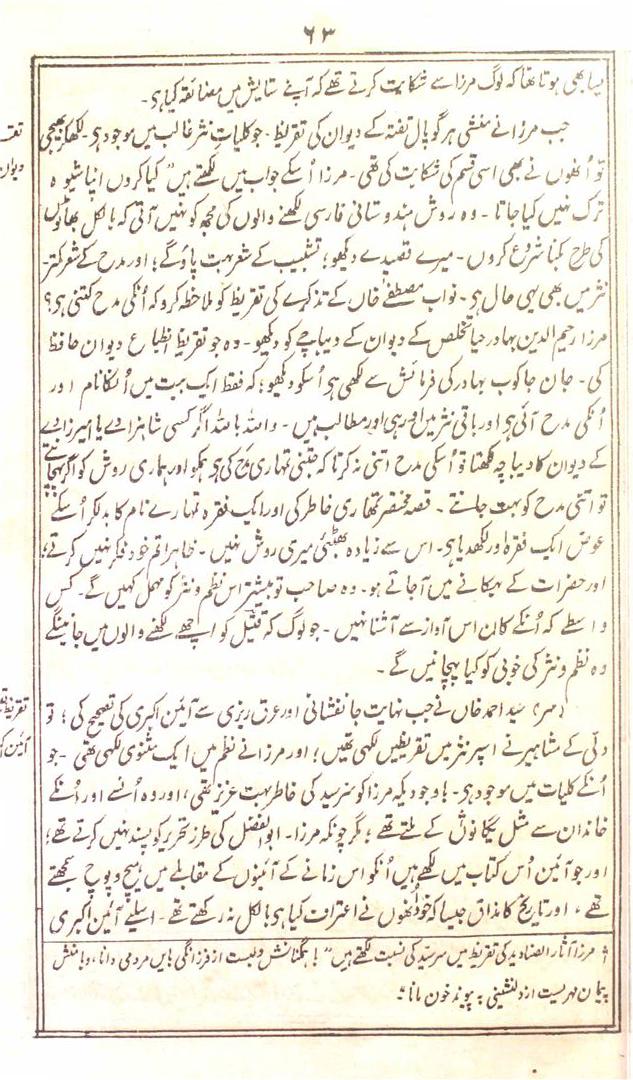 ۶۳
یسا بھی ہوتا تھا کہ لوگ مرزا سے شکایت کرتے تھے کہ آپنے ستایش میں مضائقہ کیا ہی۔
جب مرزا نے منشی ہرگوپال تفتہ کے دیوان کی تقریظ۔ جو کلیات نثر غالب میں موجود ہی۔ لکھکر بھیجی
تو اُنھوں نے بھی اسی قسم کی شکایت کی تھی۔ مرزا اُسکے جواب میں لکھتے ہیں "کیا کروں اپنا شیوہ
ترک نہیں کیا جاتا۔ وہ روش ہندوستانی فارسی لکھنے والوں کی مجھکو نہیں آتی کہ بالکل بھاٹوں
کی طرح بکنا شروع کروں۔ میرے قصیدے دیکھو؛ تشبیب کے شعر بہت پاؤ گے؛ اور مدح کے شعر کمتر۔
نثر میں بھی یہی حال ہی۔ نواب مصطفےٰ خاں کے تذکرے کی تقریظ کو ملاحظہ کرو کہ اُنکی مدح کتنی ہی؟
مرزا رحیم الدین بہادر حیا تخلص کے دیوان کے دیباچے کو دیکھو۔ وہ جو تقریظ انطباع دیوان حافظ
کی۔ جان جاکوب بہادر کی فرمائش سے لکھی ہی اُسکو دیکھو؛ کہ فقط ایک بیت میں اُنکا نام اور
اُنکی مدح آئی ہی اور باقی نثر میں اور ہی اور مطالب ہیں۔ واللہ باللہ اگر کسی شاہزادے یا امیرزادے
کے دیوان کا دیباچہ لکھتا تو اُسکی مدح اتنی نہ کرتا کہ جتنی تمہاری مدح کی ہی ہمکو اور ہماری روش کو اگر پہچانتے
تو اتنی مدح کو بہت جانتے۔ قصہ مختصر تمھاری خاطر کی اور ایک فقرہ تمہارے نام کا بدلکر اُسکے
عوض ایک فقرہ اور لکھدیا ہی۔ اس سے زیادہ بھٹئی میری روش نہیں۔ ظاہرا تم خود فکر نہیں کرتے،
اور حضرات کے بہکانے میں آ جاتے ہو۔ وہ صاحب تو بیشتر اس نظم و نثر کو مہمل کہیں گے۔ کس
واسطے کہ اُنکے کان اس آواز سے آشنا نہیں۔ جو لوگ کہ قتیل کو اچھے لکھنے والوں میں جانینگے
وہ نظم و نثر کی خوبی کو کیا پہچانیں گے۔
(سر) سید احمد خاں نے جب نہایت جانفشانی اور عرق ریزی سے آئین اکبری کی تصحیح کی؛ تو
دلّی کے مشاہیر نے اسپر نثر میں تقریظیں لکھی تھیں؛ اور مرزا نے نظم میں ایک مثنوی لکھی تھی۔ جو
اُنکے کلیات میں موجود ہی۔ باوجودیکہ مرزا کو سرسید کی خاطر بہت عزیز تھی، اور وہ اُنسے اور اُنکے
خاندان سے مثل یگانوں کے ملتے تھے؛ مگر چونکہ مرزا۔ ابوالفضل کی طرز تحریر کو پسند نہیں کرتے تھے؛
اور جو آئین اُس کتاب میں لکھے ہیں اُنکو اس زمانے کے آئینوں کے مقابلے میں ہیچ و پوچ سمجھتے
تھے، اور تاریخ کا مذاق جیسا کہ خود اُنھوں نے اعتراف کیا ہی بالکل نہ رکھتے تھے۔ اسلیے آئین اکبری
مرزا آثار الصنادید کی تقریظ میں سرسید کی نسبت لکھتے ہیں "